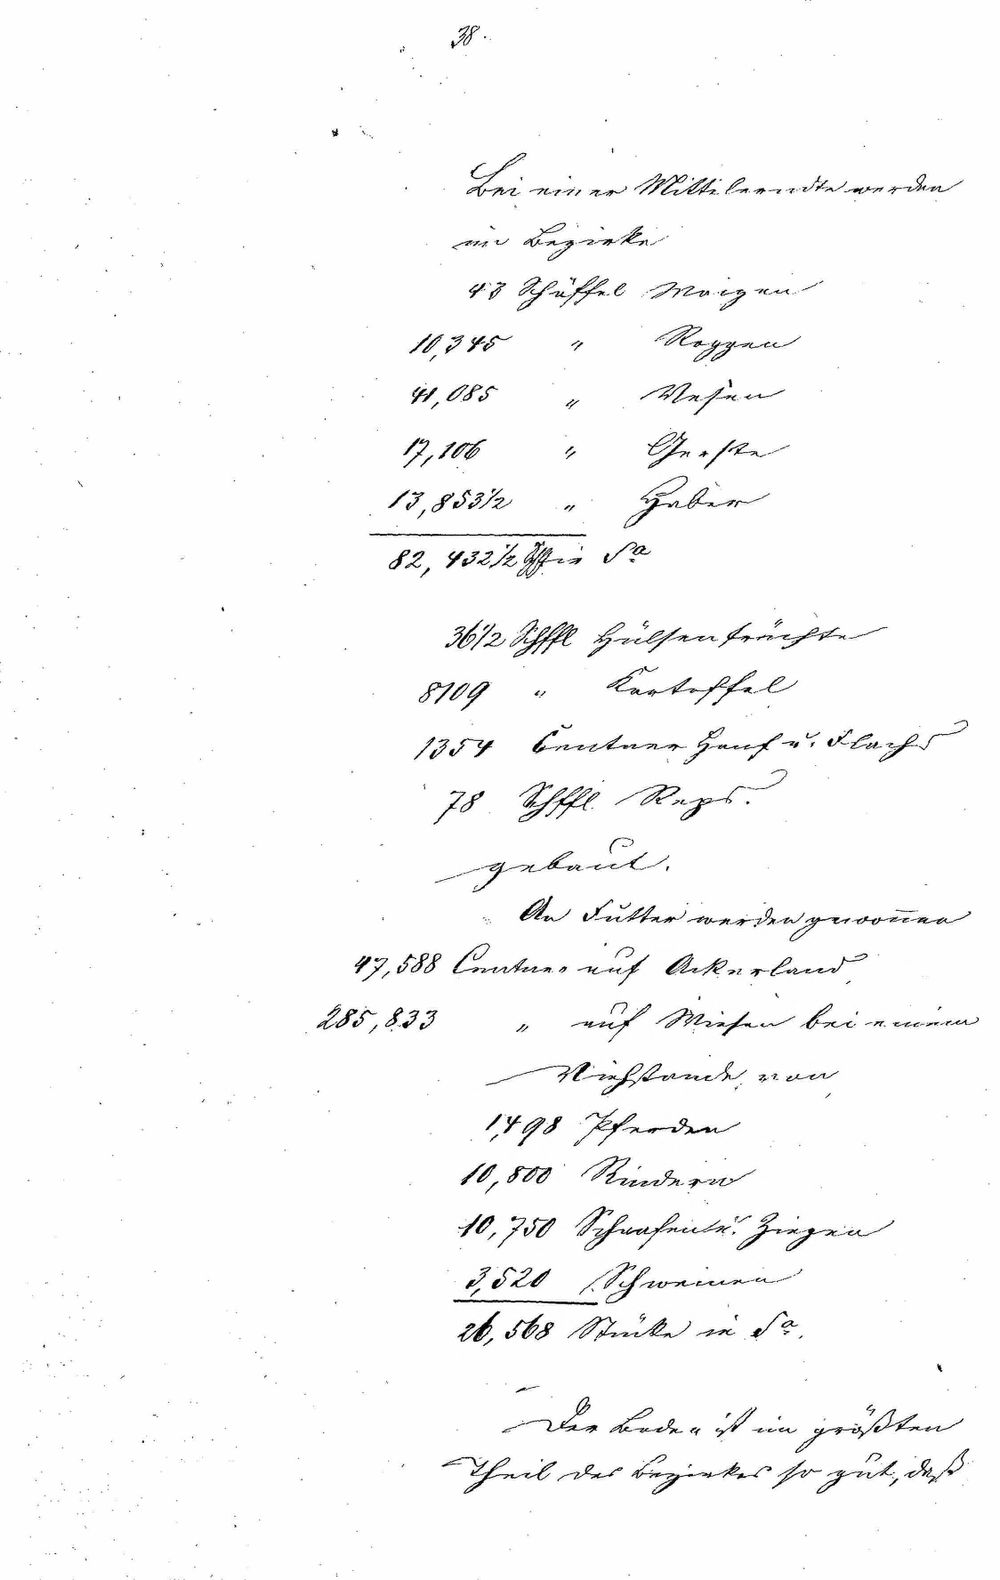 38.
Bei einer Mittelerndte werden
im Bezirke
43 Schäffel Waizen
10,345 " Roggen
41,085 " Vesen
17,106 " Gerste
13,853 1/2 " Haber
82,432 1/2 in Sa
36 1/2 Schffl Hülsenfrüchte
8109 " Kartoffel
1354 Centner Hanf u. Flachs
78 Schffl. Reps.
gebaut.
An Futter werden gewon̄en
47,588 Centner auf Ackerland
285,833 " auf Wiesen bei einem
Viehstande von
1,498 Pferden
10,800 Rindern
10,750 Schaafen u. Ziegen
3,520 Schweinen
26,568 Stücke in Sa.
Der Boden ist im größten
Theil des Bezirkes so gut, daß